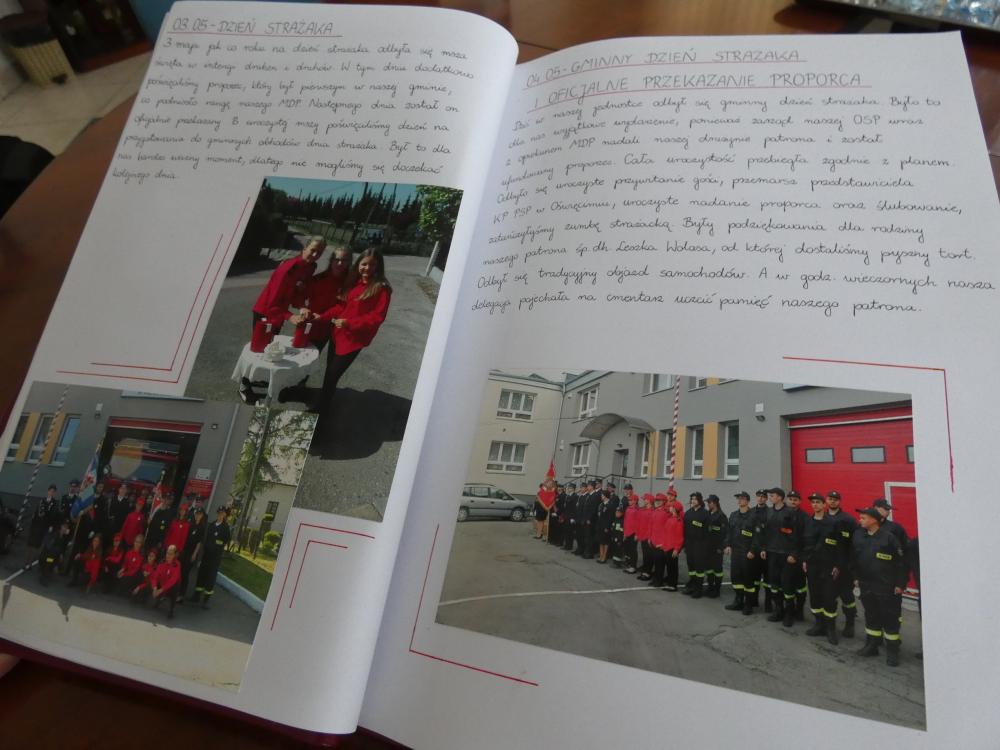 03.05 - DZIEŃ STRAŻAKA
3 maja jak co roku na dzień strażaka odbyła się msza
święta w intencji druhen i druhów. W tym dniu dodatkowo
poświęciliśmy proporzec, który był pierwszym w naszej gminie,
co podniosło rangę naszego MDP. Następnego dnia został on
oficjalnie przekazany. Po uroczystej mszy poświęciliśmy dzień na
przygotowania do gminnych obchodów dnia strażaka. Był to dla
nas bardzo ważny moment, dlatego nie mogliśmy się doczekać
kolejnego dnia.
04.05 - GMINNY DZIEŃ STRAŻAKA
I OFICJALNE PRZEKAZANIE PROPORCA
Dziś w naszej jednostce odbył się gminny dzień strażaka. Było to
dla nas wyjątkowe wydarzenie, ponieważ zarząd naszej OSP wraz
z opiekunem MDP nadali naszej drużynie patrona i został
ufundowany proporzec. Cała uroczystość przebiegła zgodnie z planem.
Odbyło się uroczyste przywitanie gości, przemarsz przedstawiciela
KP PSP w Oświęcimiu, uroczyste nadanie proporca oraz ślubowanie,
zatańczyłyśmy zumbę strażacką. Były podziękowania dla rodziny
naszego patrona śp. dh. Leszka Wolasa, od której dostaliśmy pyszny tort.
Odbył się tradycyjny objazd samochodów. A w godz. wieczornych nasza
delegacja pojechała na cmentarz uczcić pamięć naszego patrona.